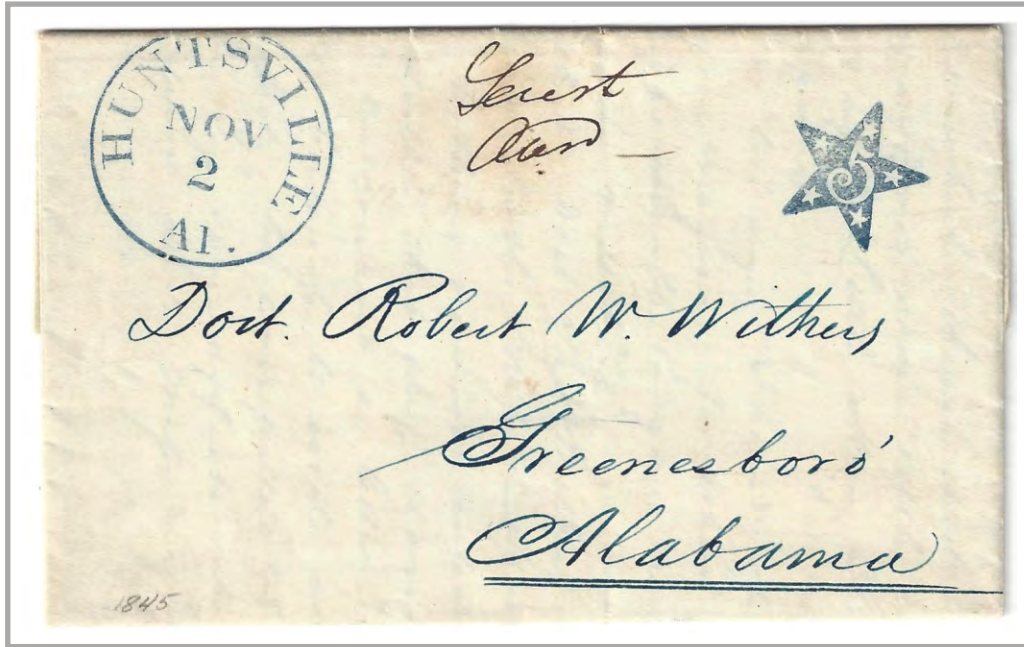 HUNTSVILLE
NOV
2
Al.
5
Doct. Robert W. Withers
Greenesboro'
Alabama
1845